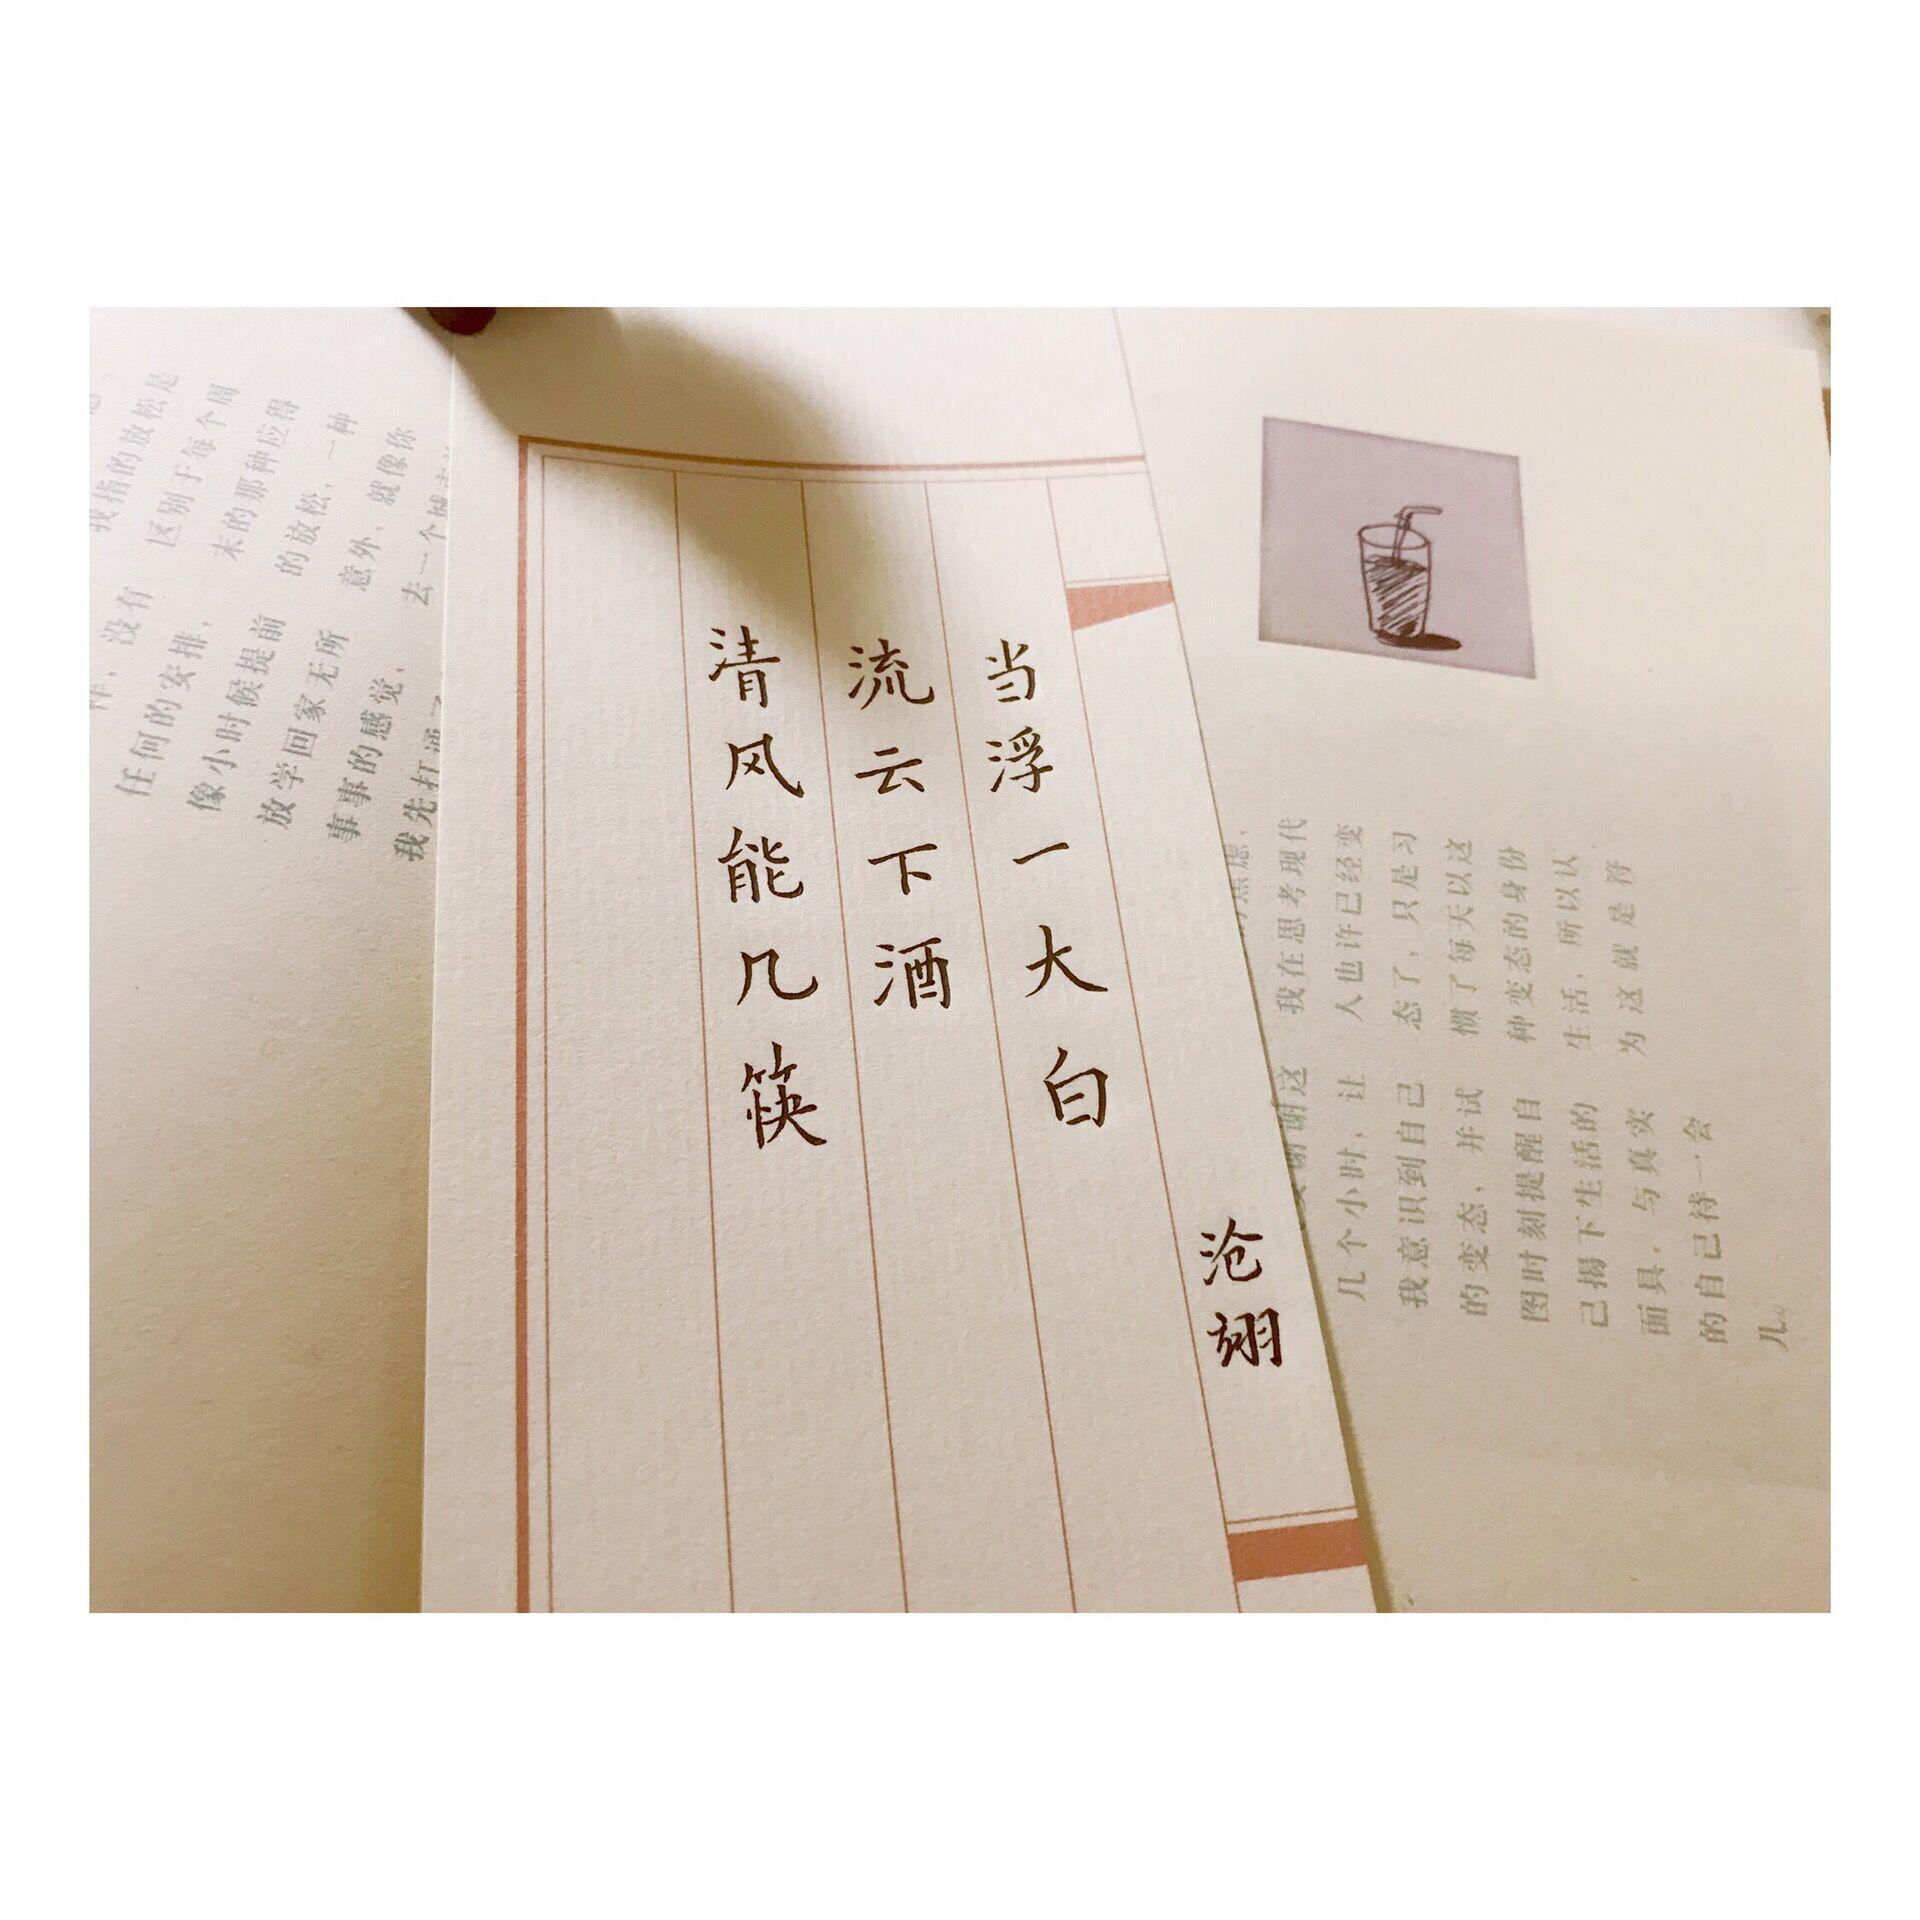 清风能几筷
流云下酒
当浮一大白
沧翊
没有
任何的安排，
像小时候提前
放学回家无所
事事的感觉，
我先打
我指的放松是
区别于每个周
末的那种应得
的放松，一种
意外，就像你
去一个
谢谢这
几个小时，让
我意识到自己
的变态，并试
图时刻提醒自
己揭下生活的
面具，与真实
的自己待一会
儿。
焦虑，
我在思考现代
人也许已经变
态了，只是习
惯了每天以这
种变态的身份
生活，所以认
为这就是符